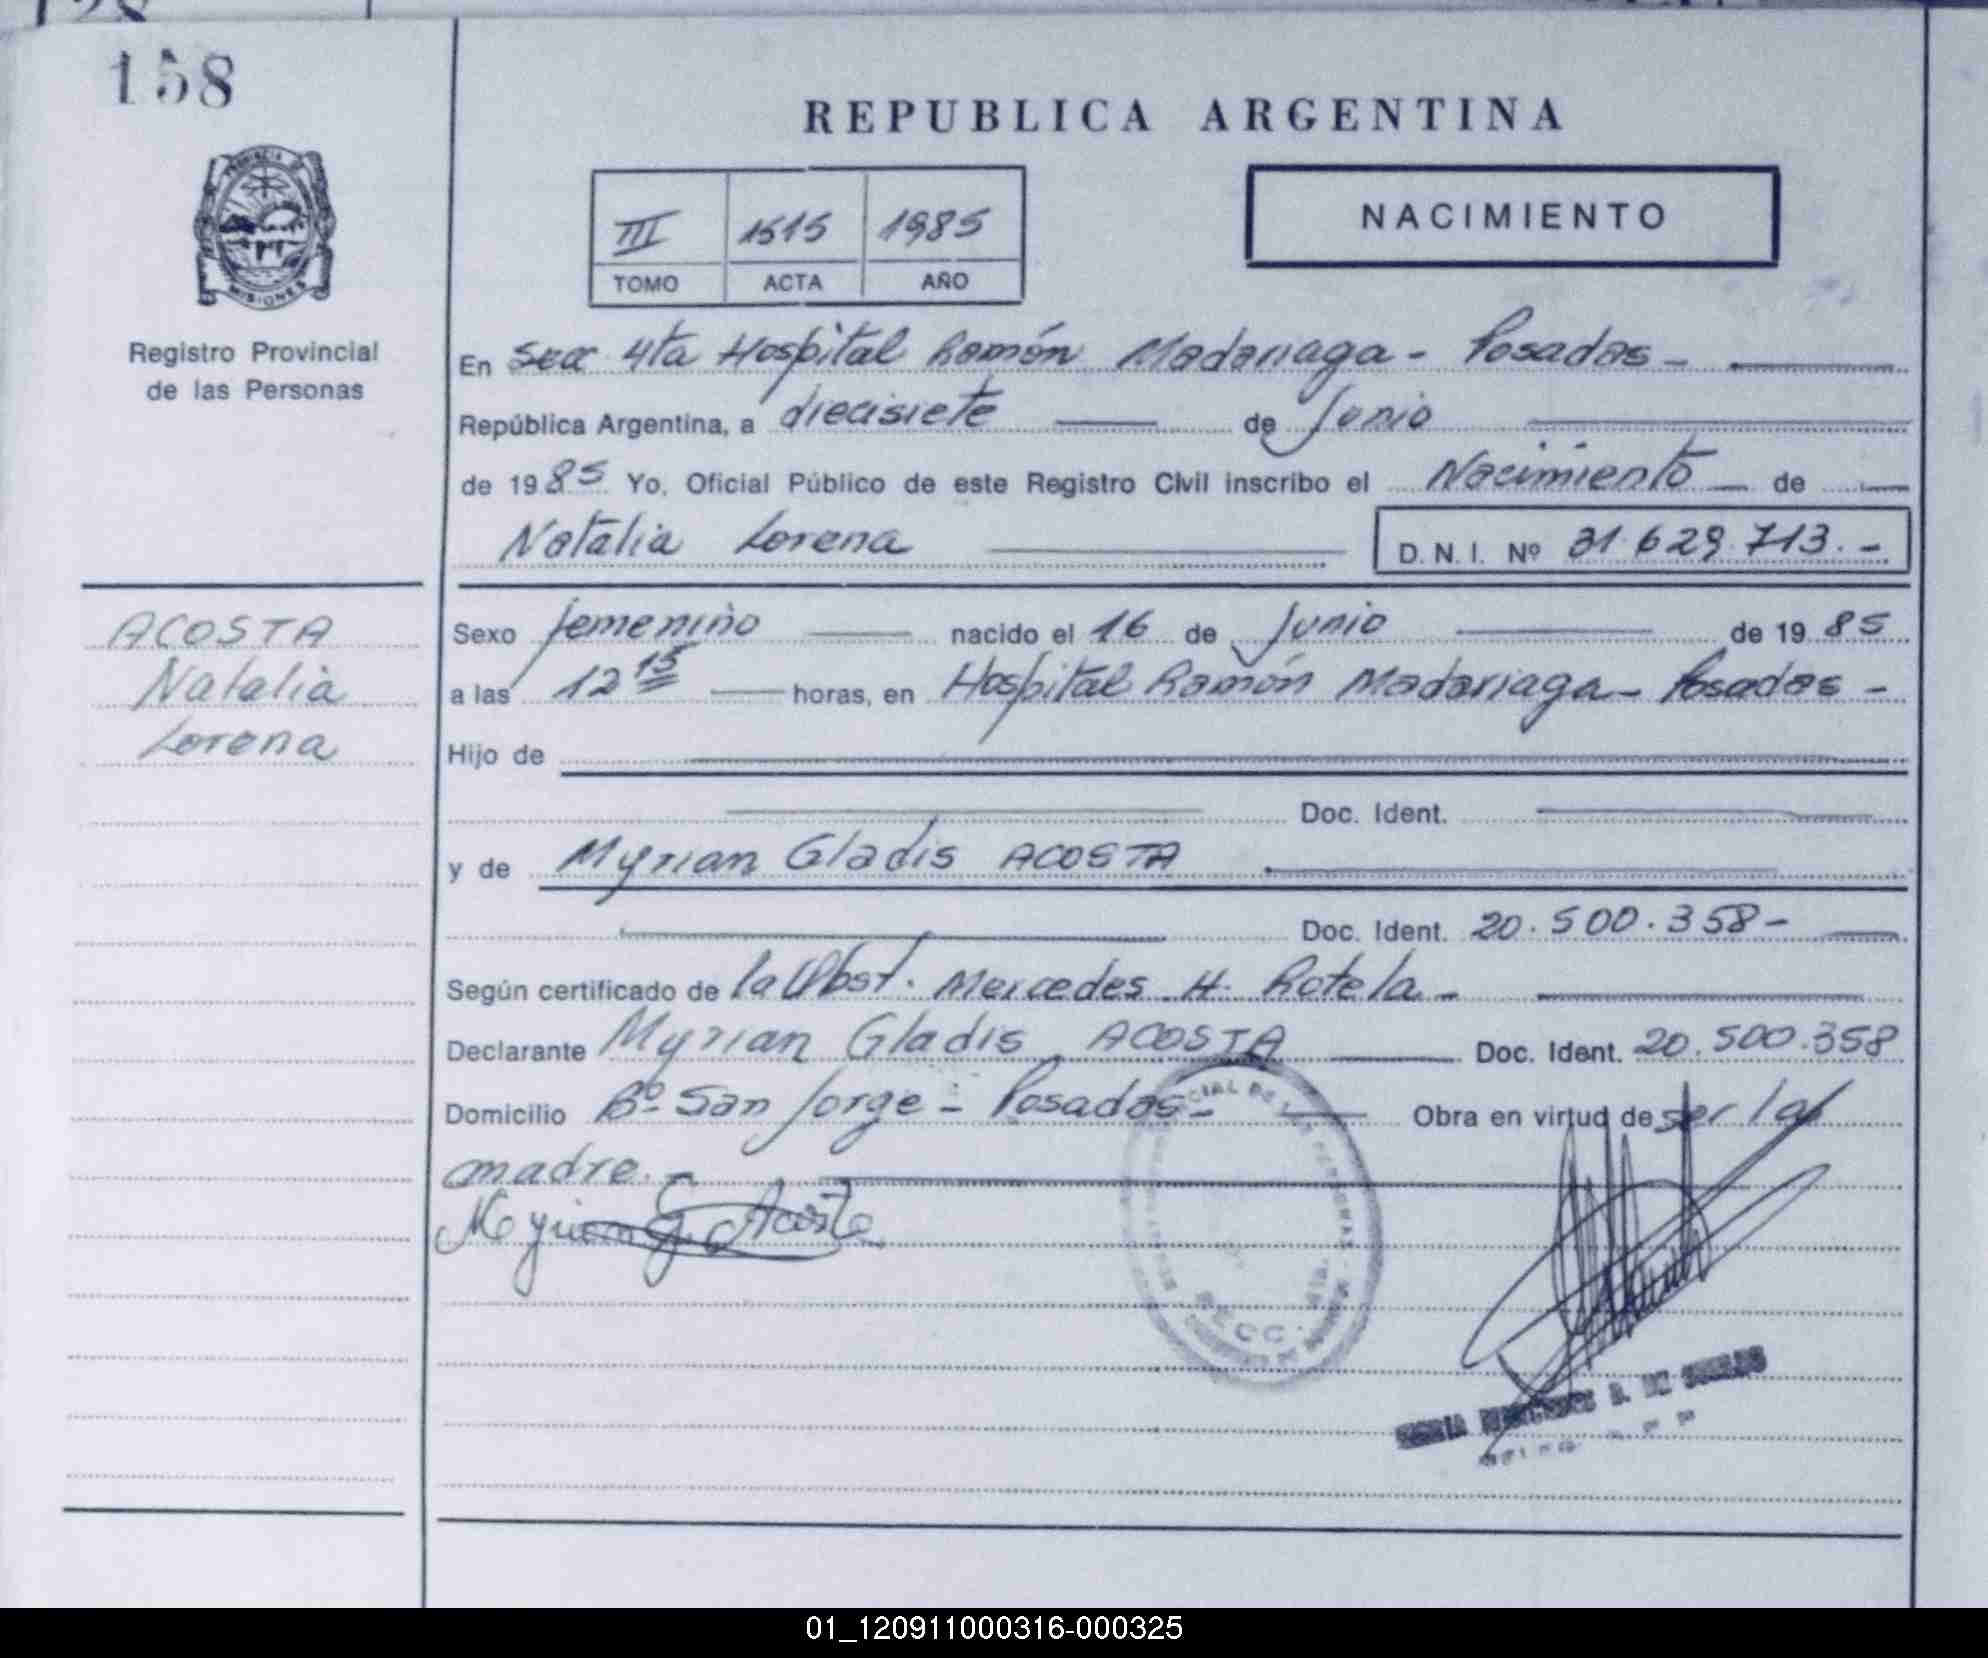 158
REPUBLICA ARGENTINA
NACIMIENTO
III 1515 1985
TOMO ACTA AÑO
PROVINCIA DE
MISIONES
Registro Provincial
de las Personas
En Secc 4ta Hospital Ramón Madariaga - Posadas -
República Argentina, a diecisiete de Junio
de 1985 Yo, Oficial Público de este Registro Civil inscribo el Nacimiento de
Natalia Lorena D.N.I. Nº 31.629.713.-
ACOSTA
Natalia
Lorena
Sexo femenino nacido el 16 de Junio de 1985
a las 12 15 horas, en Hospital Ramón Madariaga - Posadas -
Hijo de
Doc. Ident.
y de Myrian Gladis ACOSTA
Doc. Ident. 20.500.358-
Según certificado de la Obst. Mercedes H. Rotela -
Declarante Myrian Gladis ACOSTA Doc. Ident. 20.500.358
Domicilio Bº San Jorge - Posadas - Obra en virtud de ser la
madre.-
Myrian G. Acosta
SECC. 4ta.
01_120911000316-000325